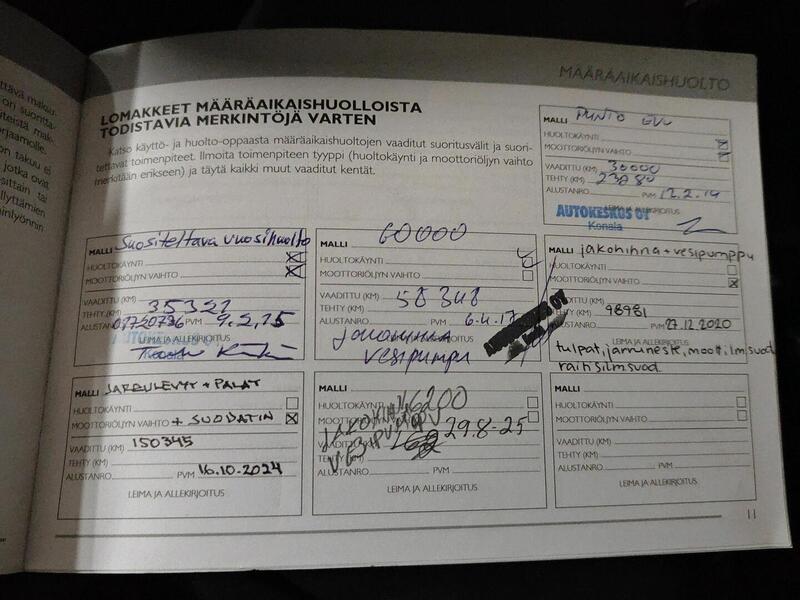 MÄÄRÄAIKAISHUOLTO
ttävä maksu-
on suoritta-
jaamolle.
on takuu ei
jotka ovat
sittain tai
llyttämien
inlyönnin
LOMAKKEET MÄÄRÄAIKAISHUOLLOISTA
TODISTAVIA MERKINTÖJÄ VARTEN
Katso käyttö- ja huolto-oppaasta määräaikaishuoltojen vaaditut suoritusvälit ja suori-
tettavat toimenpiteet. Ilmoita toimenpiteen tyyppi (huoltokäynti ja moottoriöljyn vaihto
merkitään erikseen) ja täytä kaikki muut vaaditut kentät.
MALLI PUNTO EVO
HUOLTOKÄYNTI
MOOTTORIÖLJYN VAIHTO
VAADITTU (KM) 30000
TEHTY (KM) 23780
ALUSTANRO PVM 12.2.14
LEIMA JA ALLEKIRJOITUS
AUTOKESKUS OY
Konala
MALLI Suositeltava vuosihuolto
HUOLTOKÄYNTI
MOOTTORIÖLJYN VAIHTO
VAADITTU (KM)
TEHTY (KM) 35321
ALUSTANRO 01720796 PVM 9.2.15
LEIMA JA ALLEKIRJOITUS
AUTOKESKUS OY
Konala
MALLI 60000
HUOLTOKÄYNTI
MOOTTORIÖLJYN VAIHTO
VAADITTU (KM)
TEHTY (KM) 58348
ALUSTANRO PVM 6.4.17
LEIMA JA ALLEKIRJOITUS
jakohihna
vesipumpu
MALLI jakohihna + vesipumppu
HUOLTOKÄYNTI
MOOTTORIÖLJYN VAIHTO
VAADITTU (KM)
TEHTY (KM) 98981
ALUSTANRO PVM 27.12.2020
LEIMA JA ALLEKIRJOITUS
tulpat, jarruneste, moott.ilmsuod
raitisilmsuod
MALLI JARRULEVYT + PALAT
HUOLTOKÄYNTI
MOOTTORIÖLJYN VAIHTO + SUODATIN
VAADITTU (KM) 150345
TEHTY (KM)
ALUSTANRO PVM 16.10.2024
LEIMA JA ALLEKIRJOITUS
MALLI
HUOLTOKÄYNTI
MOOTTORIÖLJYN VAIHTO
VAADITTU (KM) 29.8-25
TEHTY (KM)
ALUSTANRO PVM
LEIMA JA ALLEKIRJOITUS
JAKOHIHNA
VESIPUMPPU
MALLI
HUOLTOKÄYNTI
MOOTTORIÖLJYN VAIHTO
VAADITTU (KM)
TEHTY (KM)
ALUSTANRO PVM
LEIMA JA ALLEKIRJOITUS
11